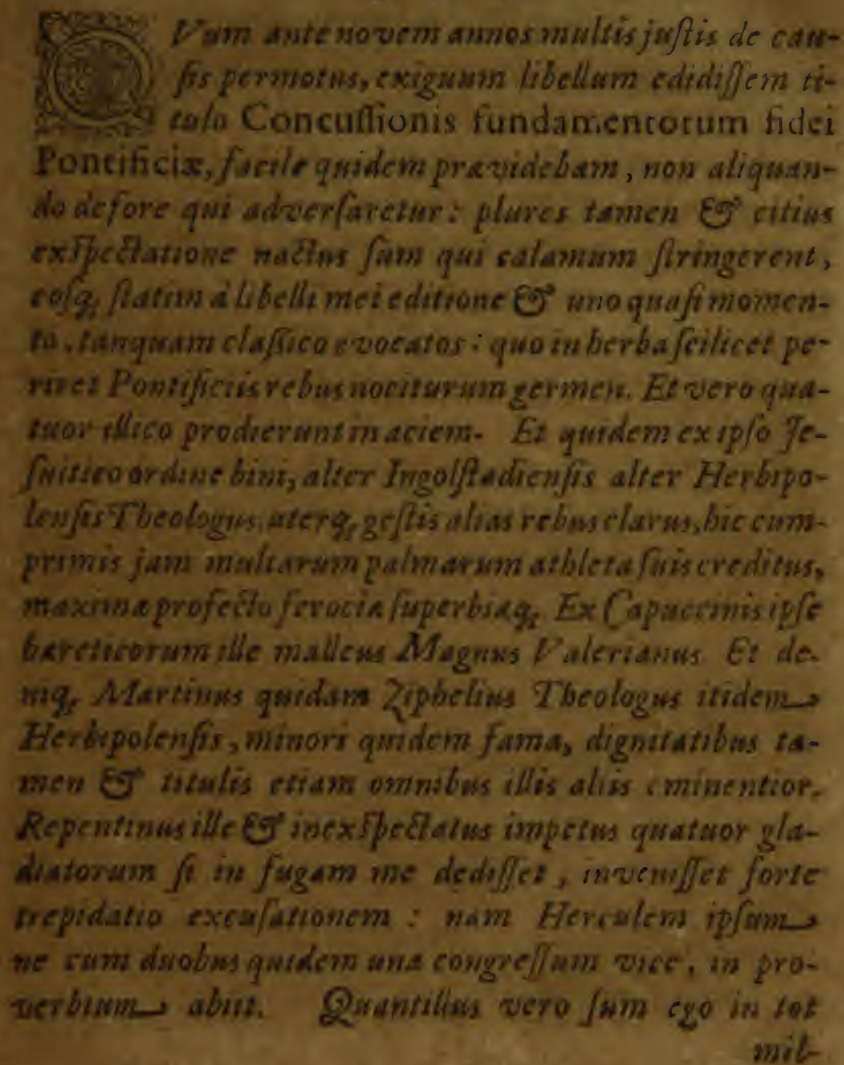 QVum ante novem annos multis juſtis de cau-
ſis permotus, exiguum libellum edidiſſem ti-
tulo Concuſſionis fundamentorum fidei
Pontificiæ, facile quidem prævidebam, non aliquan-
do defore qui adverſaretur: plures tamen & citius
exſpectatione nactus ſum qui calamum ſtringerent,
eoſq; ſtatim à libelli mei editione & uno quaſi momen-
to, tanquam claſſico evocatos: quo in herba ſcilicet pe-
riret Pontificiis rebus nociturum germen. Et vero qua-
tuor illico prodierunt in aciem. Et quidem ex ipſo Je-
ſuitico ordine bini, alter Ingolſtadienſis alter Herbipo-
lenſis Theologus, uterq; geſtis alias rebus clarus, hic cum-
primis jam multarum palmarum athleta ſuis creditus,
maximæ profecto ferociæ ſuperbiæq; Ex Capuccinis ipſe
hæreticorum ille malleus Magnus Valerianus. Et de-
niq; Martinus quidam Ziphelius Theologus itidem
Herbipolenſis, minori quidem fama, dignitatibus ta-
men & titulis etiam omnibus illis aliis eminentior.
Repentinus ille & inexſpectatus impetus quatuor gla-
diatorum ſi in fugam me dediſſet, inveniſſet forte
trepidatio excuſationem: nam Herculem ipſum
ne cum duobus quidem una congreſſum vice, in pro-
verbium abiit. Quantillus vero ſum ego in tot
mil-